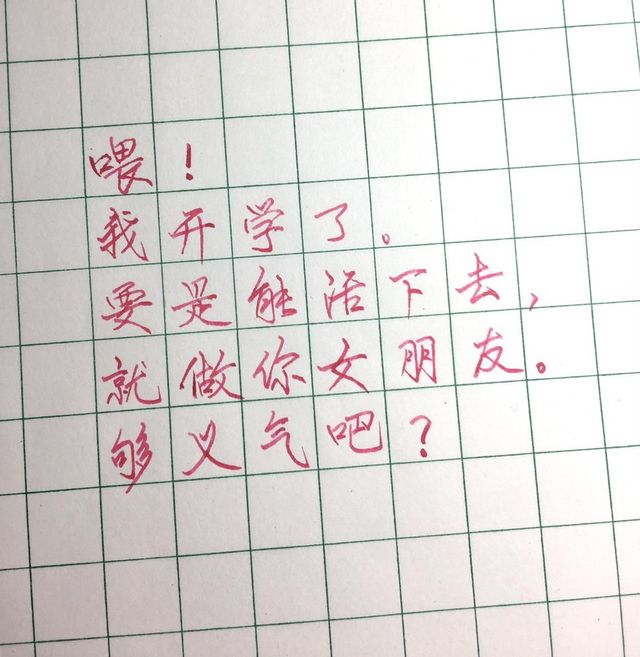 喂！
我开学了。
要是能活下去，
就做你女朋友。
够义气吧？